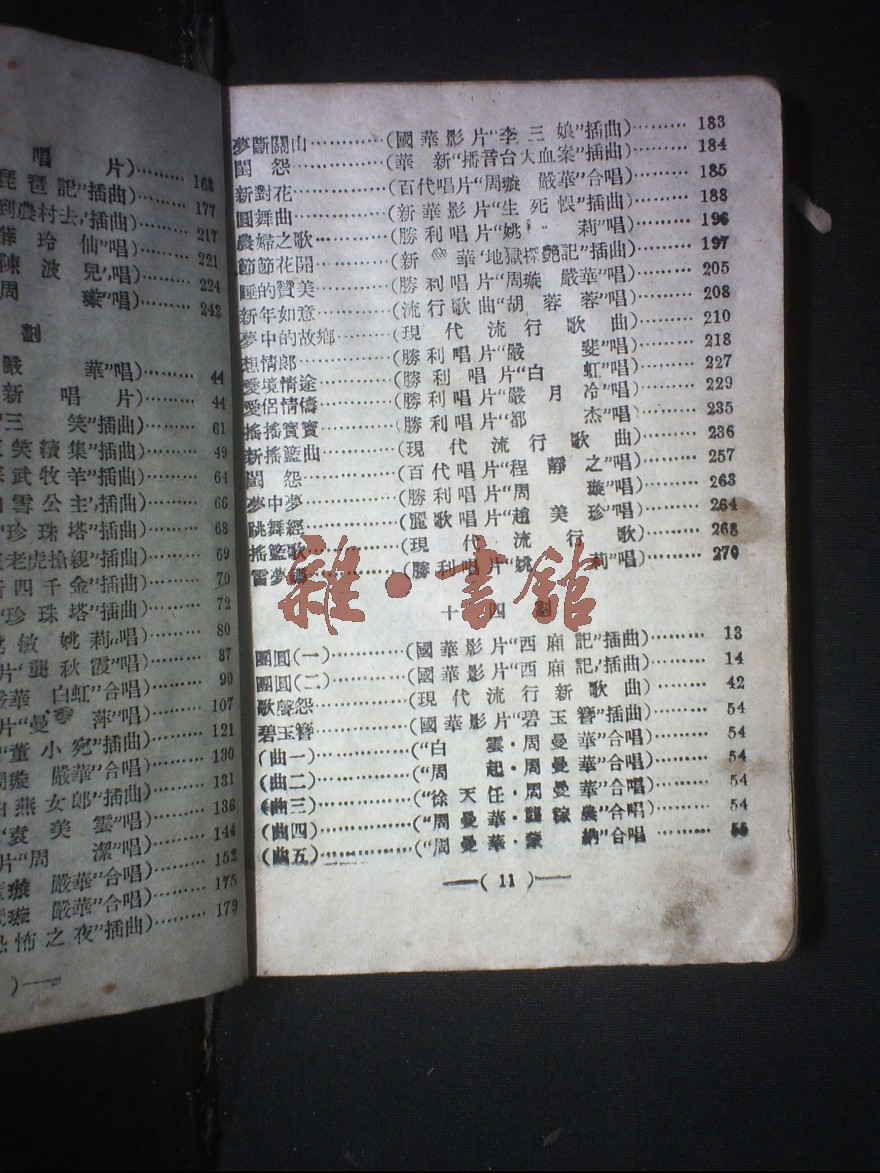 唱 片)……… 163
琵琶記”插曲)…… 177
到農村去’插曲)…… 217
薛玲仙”唱)…… 221
陳波兒’唱)…… 224
周 璇”唱)…… 242
劃
嚴 華”唱)…… 44
新唱片)…… 44
“三 笑”插曲)…… 61
三笑續集”插曲)…… 49
蘇武牧羊”插曲)…… 64
白雪公主’插曲)…… 66
“珍珠塔”插曲)…… 68
王老虎搶親”插曲)…… 69
新四千金”插曲)…… 70
“珍珠塔”插曲)…… 72
敏 姚莉”唱)…… 80
片‘龔秋霞”唱)…… 87
嚴華 白虹”合唱)…… 90
片“曼 萍”唱)…… 107
“董小宛”插曲)…… 121
周璇 嚴華”合唱)…… 130
白燕女郎”插曲)…… 131
“袁美雲”唱)…… 136
片“周 潔”唱)…… 144
璇 嚴華”合唱)…… 152
璇 嚴華”合唱)…… 175
恐怖之夜”插曲)…… 179
)——
夢斷關山…………(國華影片“李三娘”插曲)……… 183
閨 怨…………(華 新“播音台大血案”插曲)…… 184
新對花…………(百代唱片“周璇 嚴華”合唱)…… 185
圓舞曲…………(新華影片“生死恨”插曲)…… 188
農婦之歌…………(勝利唱片“姚 莉”唱)…… 196
節節花開…………(新 華‘地獄探艷記”插曲)…… 197
睡的贊美…………(勝利唱片“周璇 嚴華”唱)…… 205
新年如意…………(流行歌曲“胡蓉蓉”唱)…… 208
夢中的故鄉………(現代流行歌曲)…… 210
想情郎…………(勝利唱片“嚴 斐”唱)…… 218
愛境情途…………(勝利唱片“白 虹”唱)…… 227
愛侶情儔…………(勝利唱片“嚴月冷”唱)…… 229
搖搖寶寶…………(勝利唱片“都 杰”唱)…… 235
新搖籃曲…………(現代流行歌曲)…… 236
閨 怨…………(百代唱片“程靜之”唱)…… 257
夢中夢…………(勝利唱片“周 璇”唱)…… 263
跳舞經…………(麗歌唱片“趙美珍”唱)…… 264
搖籃歌…………(現代流行歌)…… 268
雷夢娜…………(勝利唱片“姚 莉”唱)…… 270
十四劃
團圓(一)…………(國華影片“西廂記”插曲)…… 13
團圓(二)…………(國華影片“西廂記’插曲)…… 14
歌聲怨…………(現代流行新歌曲)…… 42
碧玉簪…………(國華影片“碧玉簪”插曲)…… 54
(曲一)…………(“白 雲·周曼華”合唱)…… 54
(曲二)…………(“周 起·周曼華”合唱)…… 54
(曲三)…………(“徐天任·周曼華”合唱)…… 54
(曲四)…………(“周曼華·龔稼農”合唱)…… 54
(曲五)…………(“周曼華·蒙 納”合唱 …… 55
——( 11 )——
雜·書館